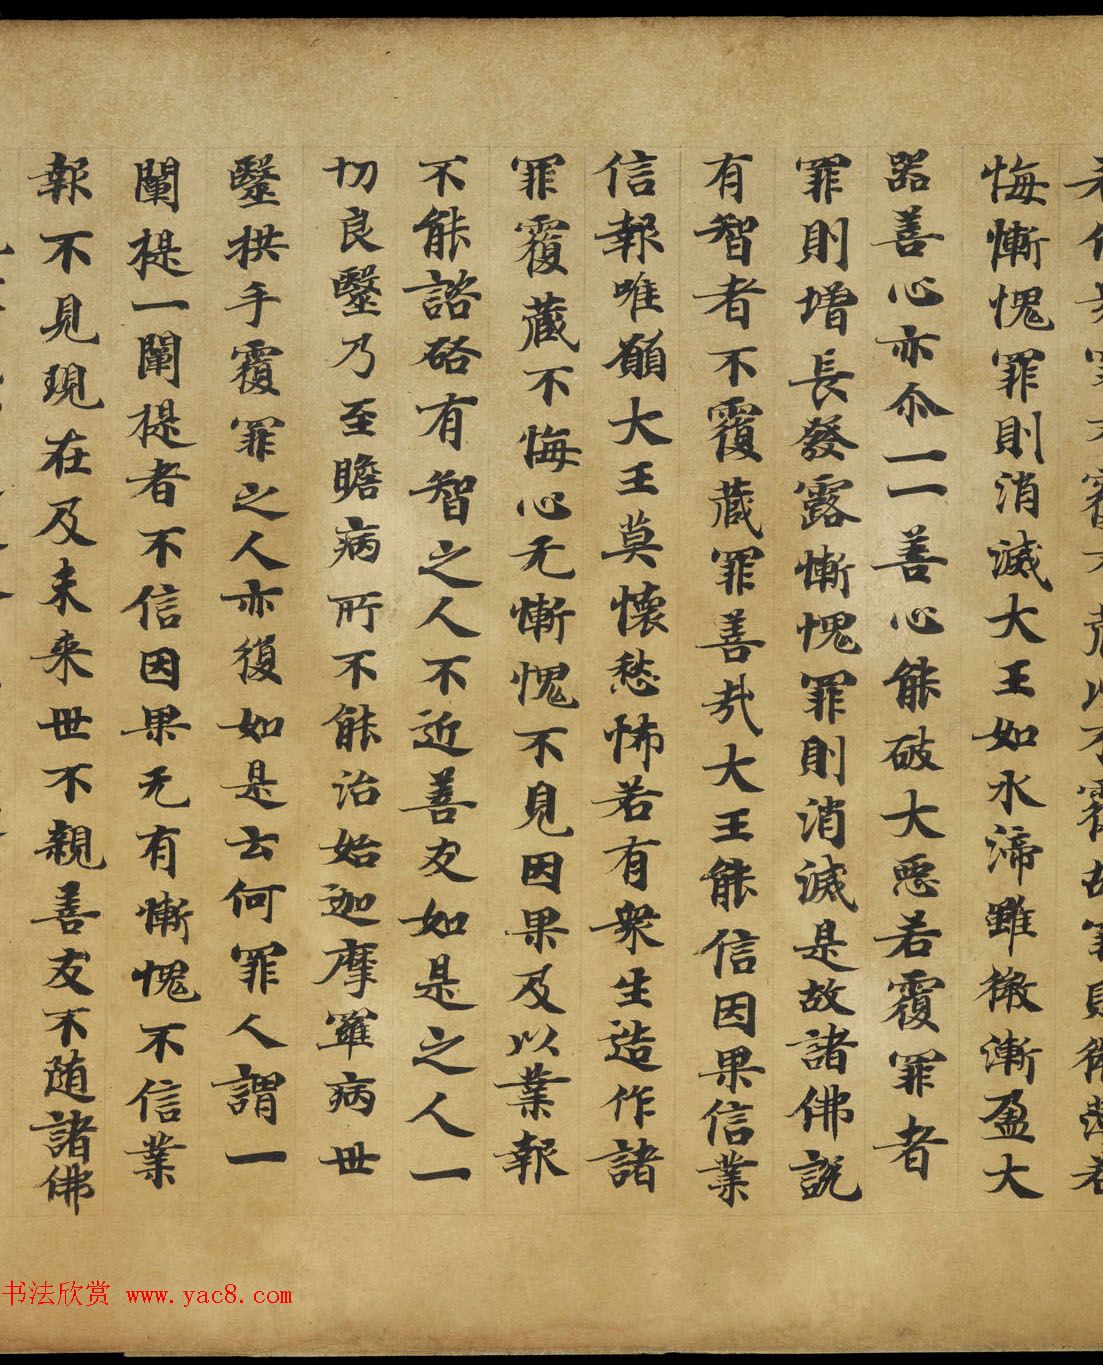 罪不覆不藏以不覆故罪則微薄若
悔慚愧罪則消滅大王如水渧雖微漸盈大
器善心亦尒一一善心能破大惡若覆罪者
罪則增長發露慚愧罪則消滅是故諸佛說
有智者不覆藏罪善哉大王能信因果信業
信報唯願大王莫懷愁怖若有衆生造作諸
罪覆藏不悔心无慚愧不見因果及以業報
不能諮硌有智之人不近善友如是之人一
切良毉乃至瞻病所不能治始迦摩羅病世
毉拱手覆罪之人亦復如是云何罪人謂一
闡提一闡提者不信因果无有慚愧不信業
報不見現在及未來世不親善友不随諸佛
书法欣赏 www.yac8.com